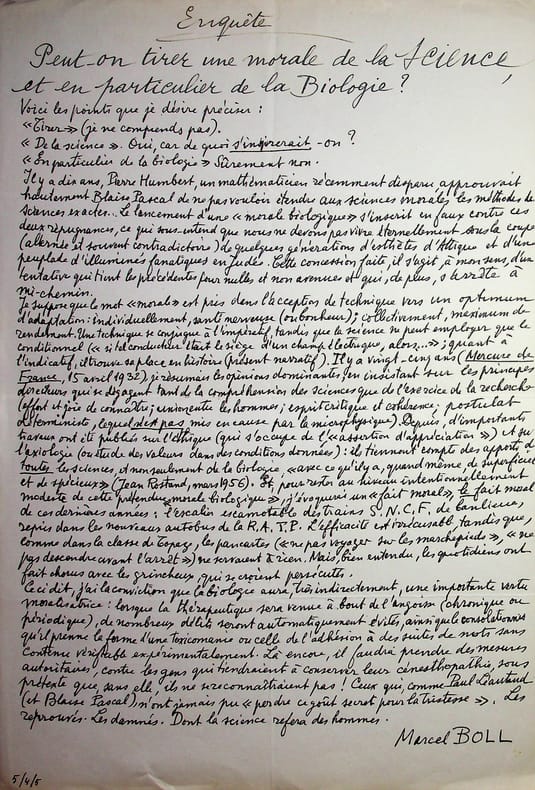 Enquête
Peut-on tirer une morale de la Science,
et en particulier de la Biologie ?
Voici les points que je désire préciser :
« Tirer » (je ne comprends pas).
« De la science ». Oui, car de quoi s'inspirerait-on ?
« En particulier de la biologie » Sûrement non.
Il y a dix ans, Pierre Humbert, un mathématicien récemment disparu, approuvait
hautement Blaise Pascal de ne pas vouloir étendre aux sciences morales les méthodes des
sciences exactes... Le lancement d'une « morale biologique » s'inscrit en faux contre ces
deux répugnances, ce qui sous-entend que nous ne devons pas vivre éternellement sous la coupe
(alternée et souvent contradictoire) de quelques générations d'esthètes d'Attique et d'une
peuplade d'illuminés fanatiques en Judée. Cette concession faite, il s'agit, à mon sens, d'une
tentative qui tient les précédentes pour nulles et non avenues et qui, de plus, s'arrête à
mi-chemin.
Je suppose le mot « morale » est pris dans l'acception de technique vers un optimum
d'adaptation : individuellement, santé nerveuse (ou bonheur) ; collectivement, maximum de
rendement. Une technique se conjugue à l'impératif, tandis que la science ne peut employer que le
conditionnel (« si tel conducteur était le siège d'un champ électrique, alors... » ; quant à
l'indicatif, il trouve sa place en histoire (présent narratif). Il y a vingt-cinq ans (Mercure de
France, 15 avril 1932), je résumais les opinions dominantes, en insistant sur les principes
directeurs qui se dégagent tant de la compréhension des sciences que de l'exercice de la recherche
(effort et joie de connaître ; union entre les hommes ; esprit critique et cohérence ; postulat
déterministe, lequel n'est pas mis en cause par la microphysique). Depuis, d'importants
travaux ont été publiés sur l'éthique (qui s'occupe de l'« assertion d'appréciation ») et sur
l'axiologie (ou étude des valeurs dans des conditions données) : ils tiennent compte des apports de
toutes les sciences, et non seulement de la biologie, « avec ce qu'il y a, quand même, de superficiel
et de spécieux » (Jean Rostand, mars 1956). Et, pour rester au niveau intentionnellement
modeste de cette prétendue « morale biologique », j'évoquerai un « fait moral », le fait moral
de ces dernières années : l'escalier escamotable des trains S.N.C.F. de banlieue,
repris dans les nouveaux autobus de la R.A.T.P. L'efficacité est irrécusable, tandis que,
comme dans la classe de Topaze, les pancartes (« ne pas voyager sur les marchepieds », « ne
pas descendre avant l'arrêt ») ne servaient à rien. Mais, bien entendu, les quotidiens ont
fait chorus avec les grincheux, qui se croient persécutés.
Ceci dit, j'ai la conviction que la biologie aura, très indirectement, une importante vertu
moralisatrice : lorsque la thérapeutique sera venue à bout de l'angoisse (chronique ou
périodique), de nombreux délits seront automatiquement évités, ainsi que le
qu'il prenne la forme d'une toxicomanie ou celle de l'adhésion à des suites de mots sans
contenu vérifiable expérimentalement. Là encore, il faudra prendre des mesures
autoritaires, contre les gens qui tiendraient à conserver leur cénesthopathie, sous
prétexte que, sans elle, ils ne se reconnaîtraient pas ! Ceux qui, comme Paul Léautaud
(et Blaise Pascal), n'ont jamais pu « perdre ce goût secret pour la tristesse ». Les
réprouvés. Les damnés. Dont la science refera des hommes.
Marcel BOLL
5/4/5